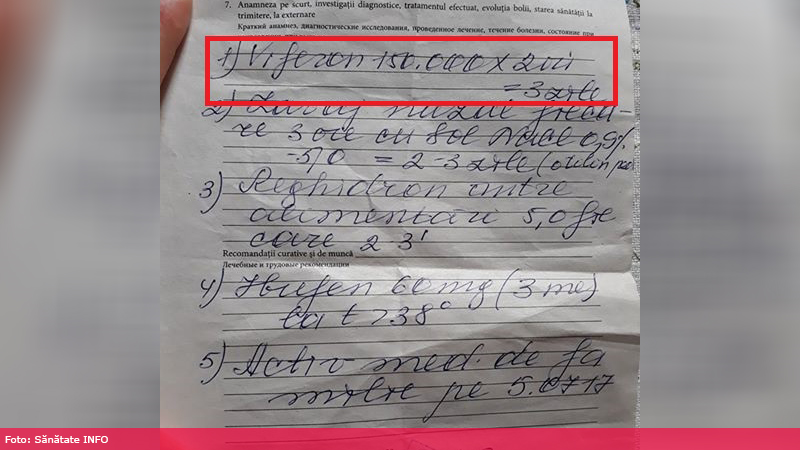 7. Anamneza pe scurt, investigații diagnostice, tratamentul efectuat, evoluția bolii, starea sănătății la
trimitere, la externare
Краткий анамнез, диагностические исследования, проведенное лечение, течение болезни, состояние при
1) Viferon 150.000 x 2
= 3 zile
2) Lavaj nazal fieca-
re 3 ore cu Sol NaCl 0,9%
= 2-3 zile
3) Reghidron intre
alimentari 5,0 fie
care 2-3'
Recomandații curative și de muncă
Лечебные и трудовые рекомендации
4) Ibufen 60 mg (3 ml)
la t > 38°
5) Activ med. de fa
milie pe 5.0717
Foto: Sănătate INFO